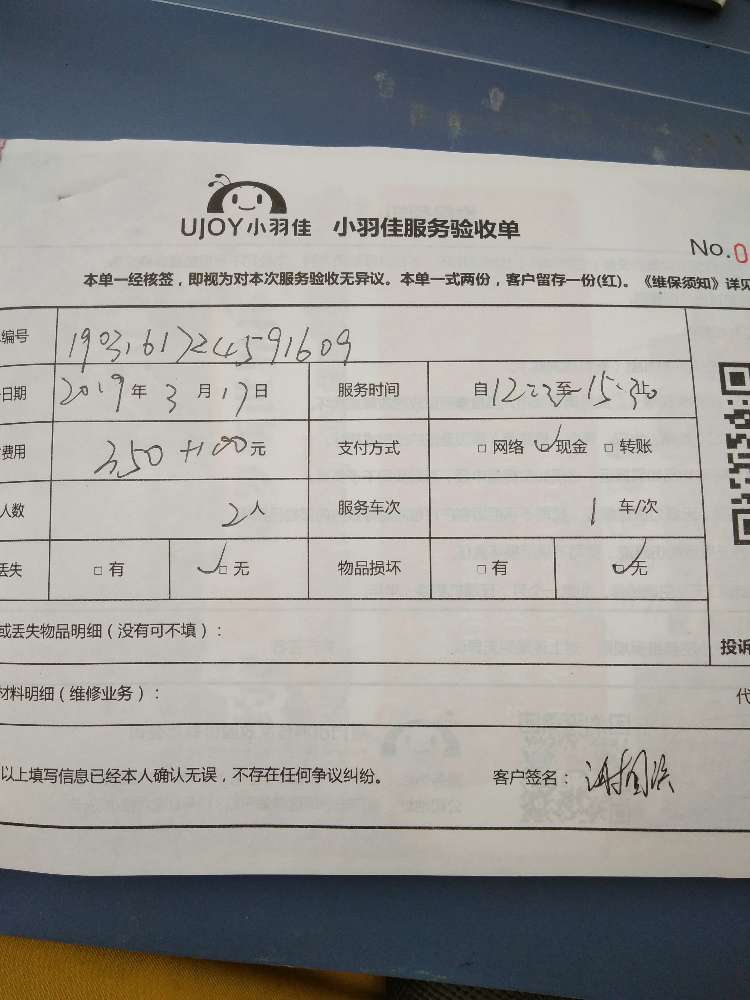 UJOY小羽佳 小羽佳服务验收单
No.0
本单一经核签，即视为对本次服务验收无异议。本单一式两份，客户留存一份(红)。《维保须知》详见
编号 1903161724591609
日期 2019年3月17日 服务时间 自12:23至15:30止
费用 350+100元 支付方式 □网络 ☑现金 □转账
人数 2人 服务车次 1车/次
丢失 □有 ☑无 物品损坏 □有 ☑无
或丢失物品明细（没有可不填）：
投诉
材料明细（维修业务）：
代
以上填写信息已经本人确认无误，不存在任何争议纠纷。 客户签名：